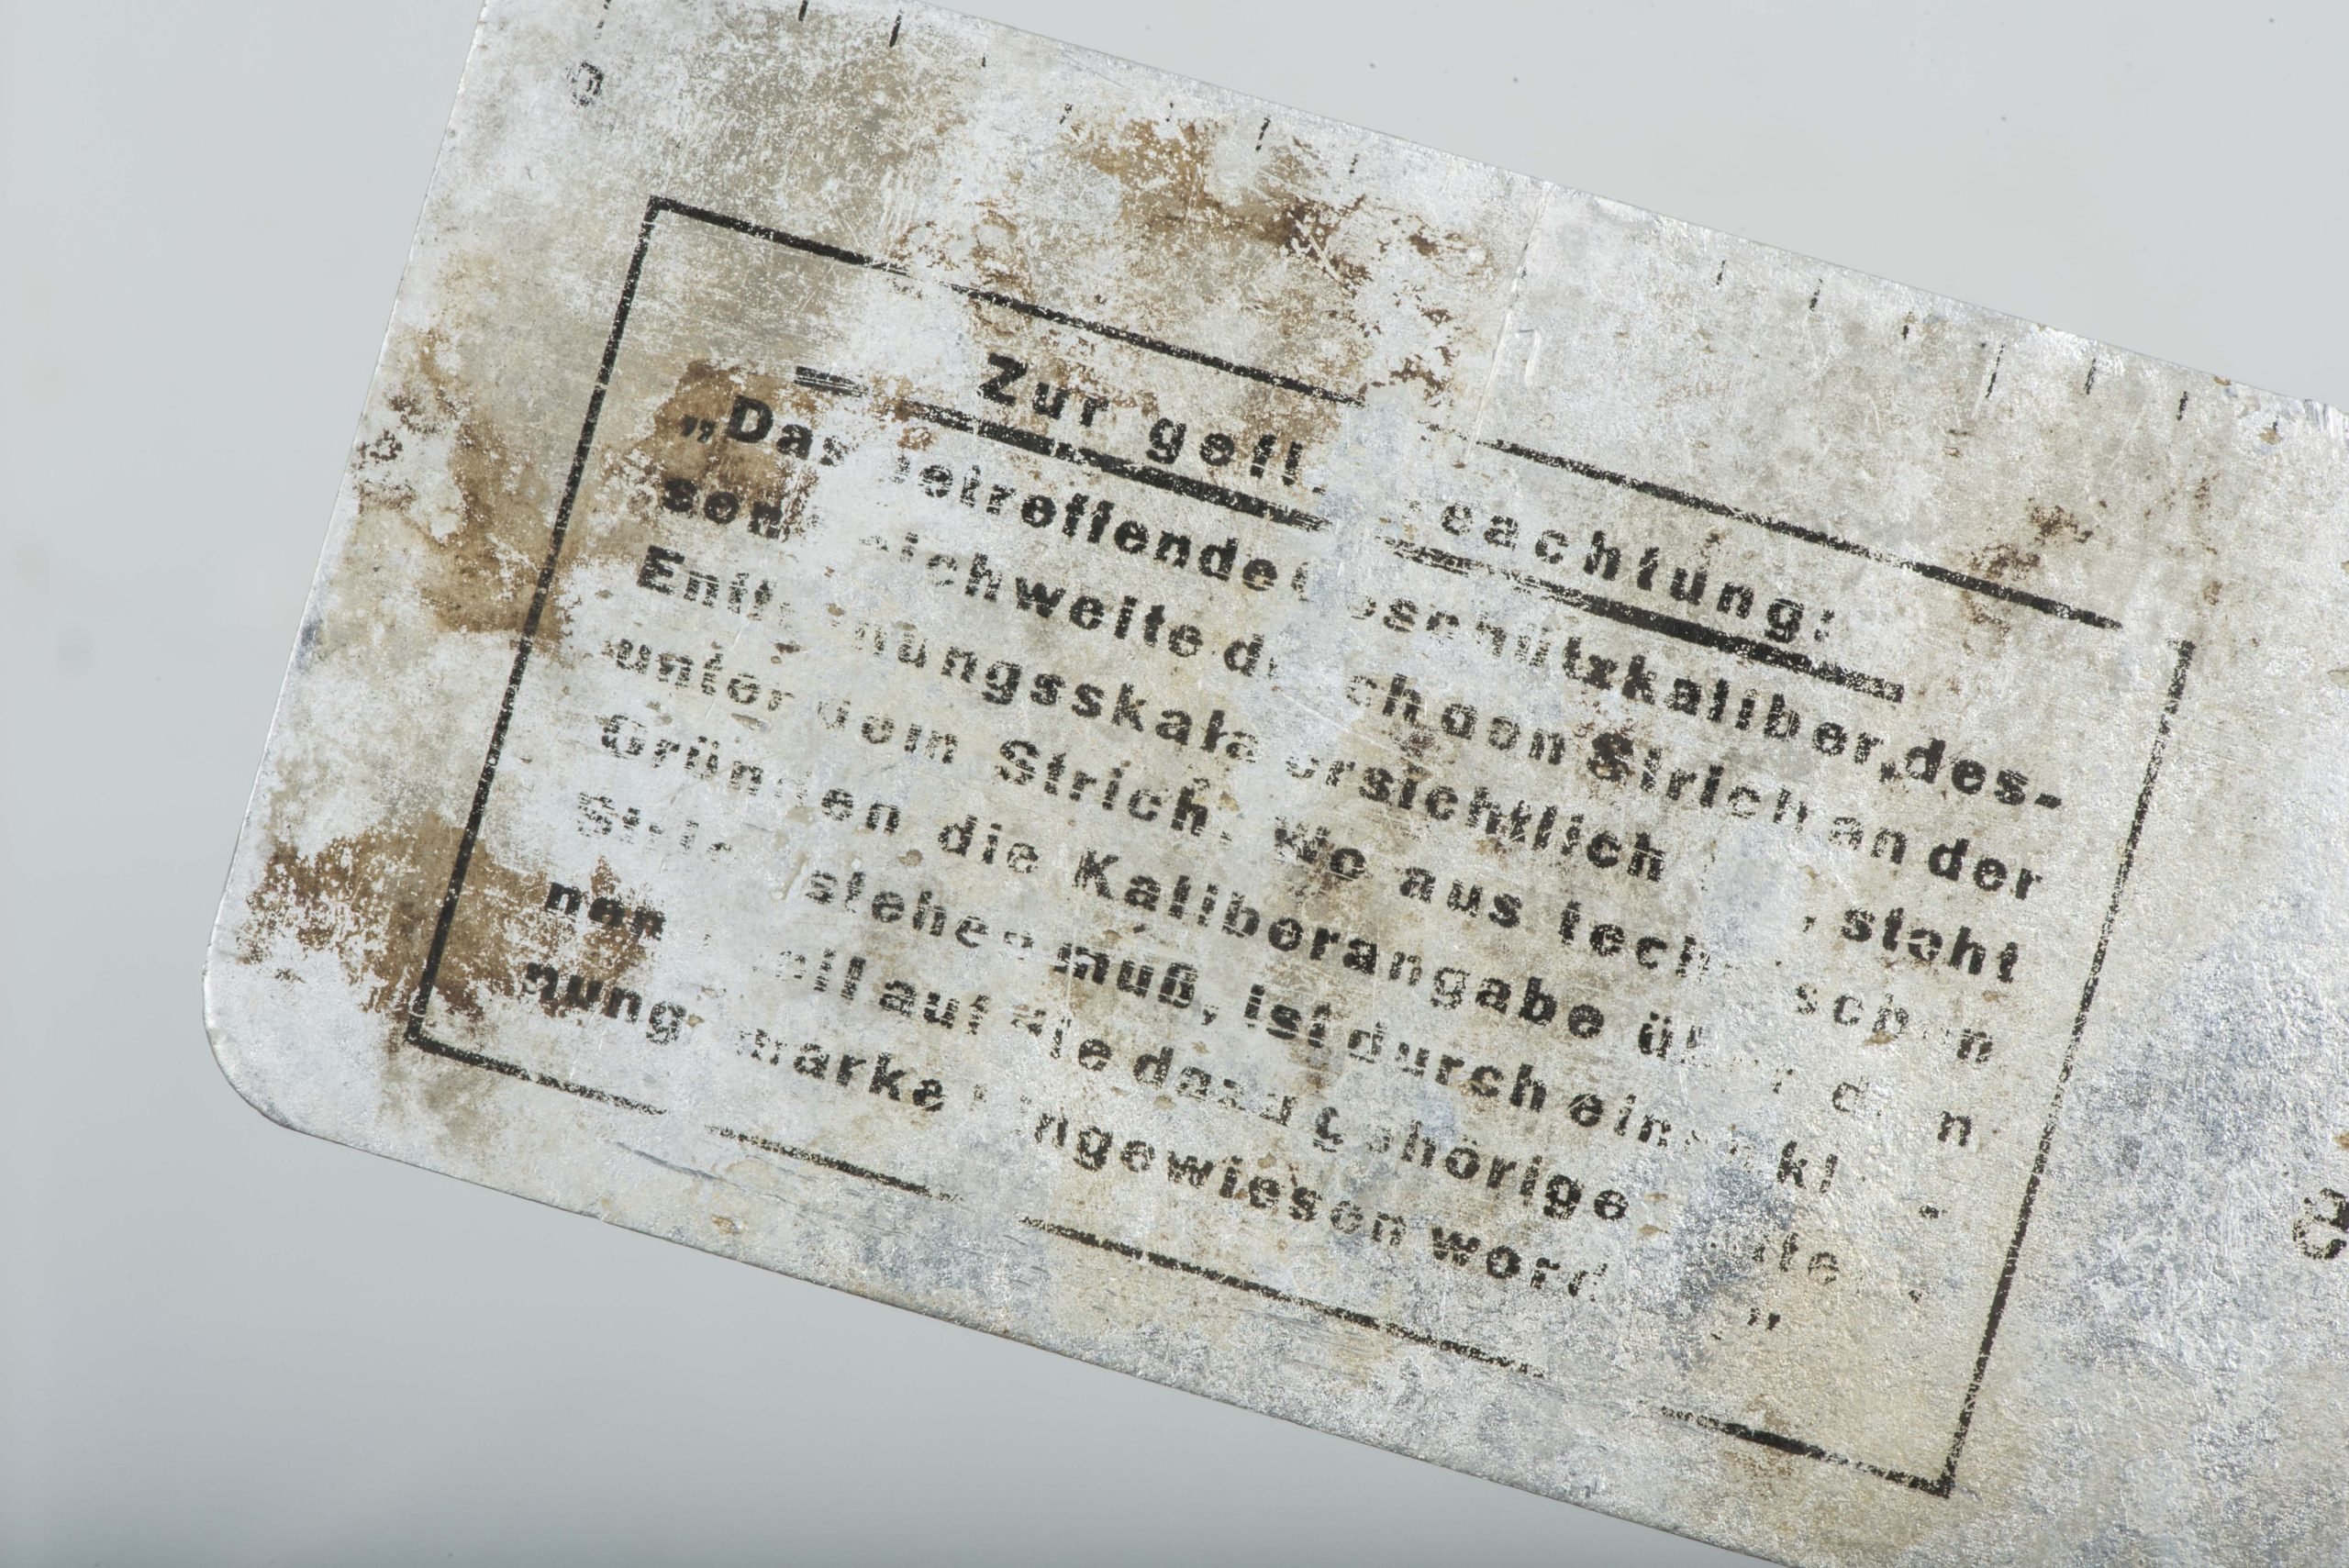 0
Zur gefl. Beachtung:
„Das betreffende Geschützkaliber, des-
sen Reichweite durch den Strich an der
Entfernungsskala ersichtlich , steht
unter dem Strich. Wo aus technischen
Gründen die Kaliberangabe über den
Strich stehen muß, ist durch einen klei-
nen Pfeil auf die dazu gehörige
nungsmarke hingewiesen worden."